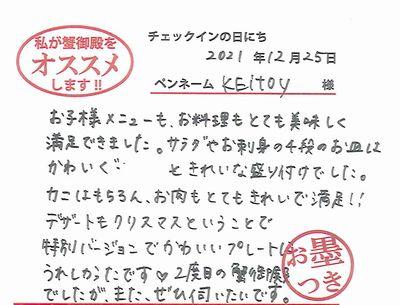 私が蟹御殿を
オススメ
します!!
チェックインの日にち
2021 年12月25日
ペンネーム KEitoy 様
お子様メニューも、お料理もとても美味しく
満足できました。サラダやお刺身の4段のお皿は
かわいく ときれいな盛り付けでした。
カニはもちろん、お肉もとてもきれいで満足!!
デザートもクリスマスということで
特別バージョンでかわいいプレートは
うれしかったです♡2度目の蟹御殿
でしたが、また、ぜひ伺いたいです。
お墨
つき